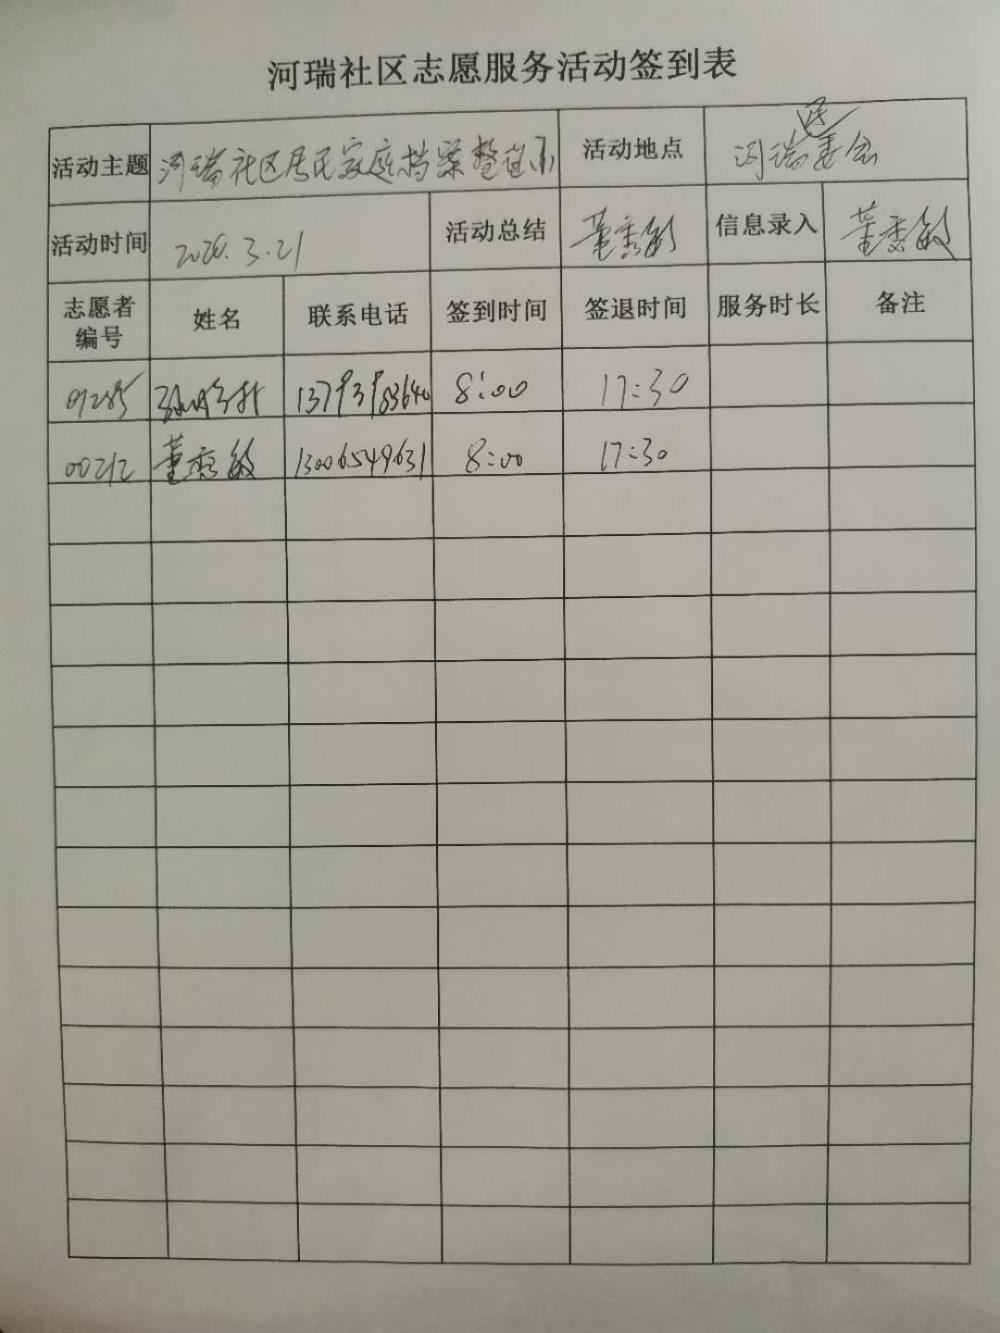 河瑞社区志愿服务活动签到表
活动主题 河瑞社区居民家庭档案整理 活动地点 河瑞居委会
活动时间 2020.3.21 活动总结 董秀敏 信息录入 董秀敏
志愿者编号 姓名 联系电话 签到时间 签退时间 服务时长 备注
01285 13793983640 8:00 17:30
00212 董秀敏 13006549631 8:00 17:30